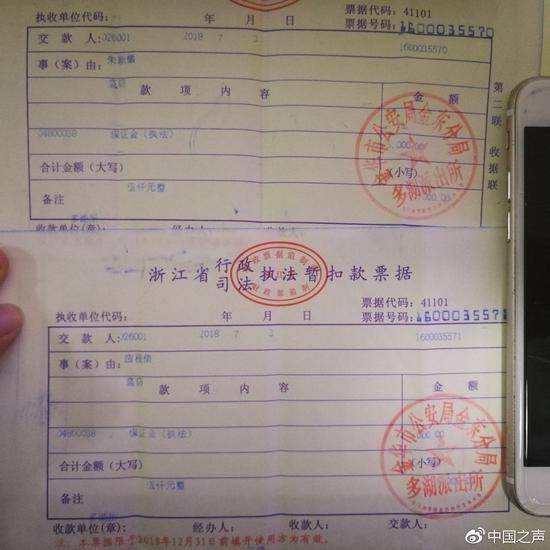 执收单位代码: 年 月 日 票据代码: 41101
票据号码: 1600035570
交 款 人: 026001 2018 7 3 1600035570
事（案）由:
款 项 内 容 金 额
04800038 保证金(执法) 5,000.00
合计金额（大写） (小写)
伍仟元整
备注
收款单位(章): 经办人:
第二联 收据联
金华市公安局金东分局
多湖派出所
浙江省行政司法执法暂扣款票据
执收单位代码: 年 月 日 票据代码: 41101
票据号码: 1600035571
交 款 人: 026001 2018 7 3 1600035571
事（案）由:
款 项 内 容 金 额
04800038 保证金(执法) 000.00
合计金额（大写） (小写)
伍仟元整
备注
收款单位(章): 经办人: 交款人:
注: 本票据限于2018年12月31日前填开使用方为有效。
金华市公安局金东分局
多湖派出所
@中国之声